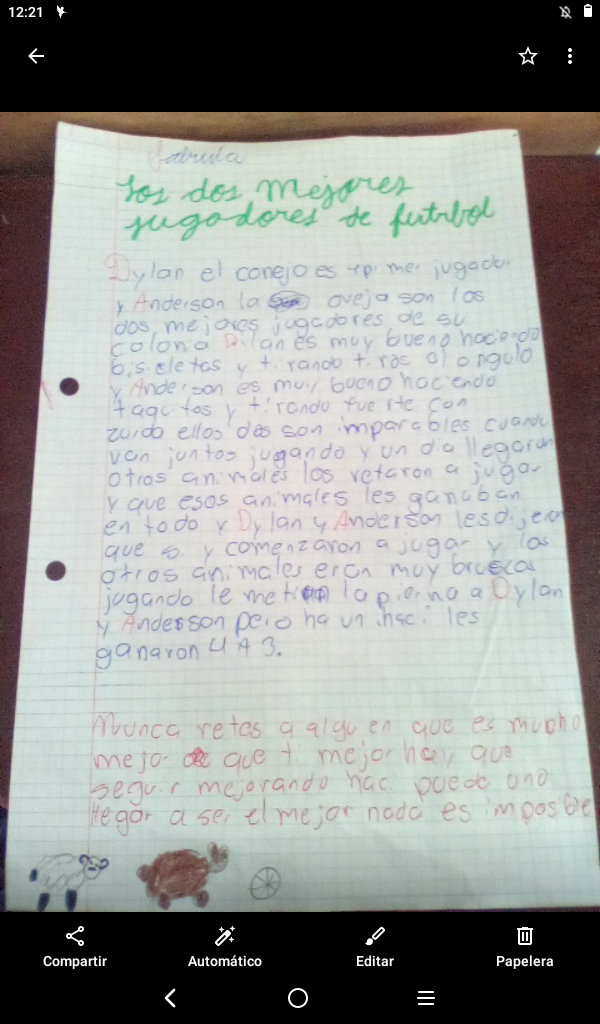 12:21
fabula
Los dos mejores
jugadores de futbol
Dylan el conejo es primer jugador
y Anderson la oveja son los
dos mejores jugadores de su
colona Dilan es muy bueno haciendo
bisicletas y tirando tiros al angulo
y Anderson es muy bueno haciendo
taquitos y tirando fuerte con
zurda ellos dos son imparables cuando
van juntos jugando y un dia llegaron
otros animales los retaron a jugar
y que esos animales les ganaban
en todo y Dylan y Anderson les dijeron
que si y comenzaron a jugar y los
otros animales eran muy bruscos
jugando le metian la pierna a Dylan
y Anderson pero haun haci les
ganaron 4 A 3.
Nunca retes a alguien que es mucho
mejor que ti mejor hay que
seguir mejorando haci puede uno
llegar a ser el mejor nada es imposible
Compartir
Automático
Editar
Papelera